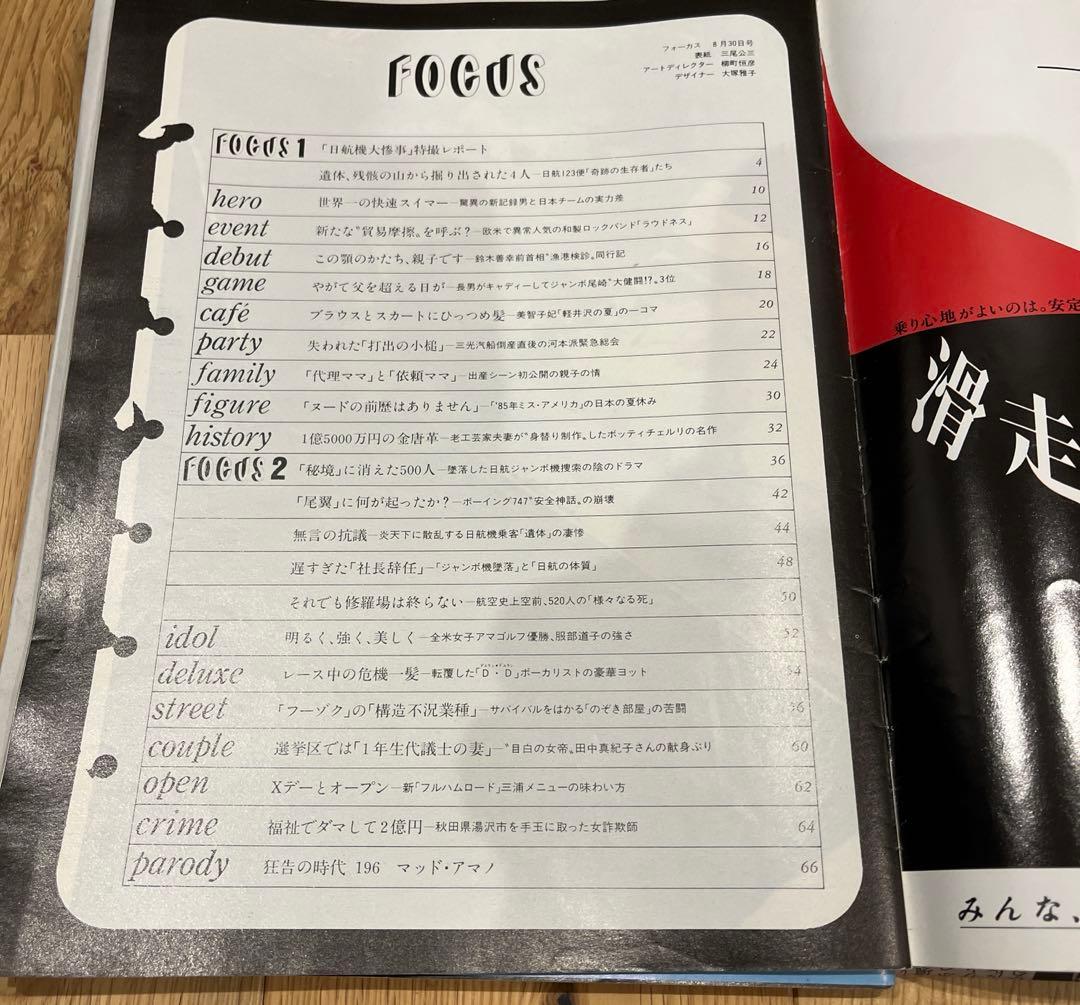 FOCUS
フォーカス 8月30日号
表紙 三尾公三
アートディレクター 柳町恒彦
デザイナー 大塚雅子
FOCUS 1 「日航機大惨事」特撮レポート
遺体、残骸の山から掘り出された4人—日航123便「奇跡の生存者」たち 4
hero 世界一の快速スイマー—驚異の新記録男と日本チームの実力差 10
event 新たな〝貿易摩擦〟を呼ぶ?—欧米で異常人気の和製ロックバンド「ラウドネス」 12
debut この顎のかたち、親子です—鈴木善幸前首相〝漁港検診〟同行記 16
game やがて父を超える日が—長男がキャディーしてジャンボ尾崎〝大健闘!?〟3位 18
café ブラウスとスカートにひっつめ髪—美智子妃「軽井沢の夏」の一コマ 20
party 失われた「打出の小槌」—三光汽船倒産直後の河本派緊急総会 22
family 「代理ママ」と「依頼ママ」—出産シーン初公開の親子の情 24
figure 「ヌードの前歴はありません」—「'85年ミス・アメリカ」の日本の夏休み 30
history 1億5000万円の金唐革—老工芸家夫妻が〝身替り制作〟したボッティチェルリの名作 32
FOCUS 2 「秘境」に消えた500人—墜落した日航ジャンボ機捜索の陰のドラマ 36
「尾翼」に何が起ったか?—ボーイング747〝安全神話〟の崩壊 42
無言の抗議—炎天下に散乱する日航機乗客「遺体」の凄惨 44
遅すぎた「社長辞任」—「ジャンボ機墜落」と「日航の体質」 48
それでも修羅場は終らない—航空史上空前、520人の「様々なる死」 50
idol 明るく、強く、美しく—全米女子アマゴルフ優勝、服部道子の強さ 52
deluxe レース中の危機一髪—転覆した「D・D」ボーカリストの豪華ヨット 54
street 「フーゾク」の「構造不況業種」—サバイバルをはかる「のぞき部屋」の苦闘 56
couple 選挙区では「1年生代議士の妻」—〝目白の女帝〟田中真紀子さんの献身ぶり 60
open Xデーとオープン—新「フルハムロード」三浦メニューの味わい方 62
crime 福祉でダマして2億円—秋田県湯沢市を手玉に取った女詐欺師 64
parody 狂告の時代 196 マッド・アマノ 66
乗り心地がよいのは。安定
滑走
みんな、